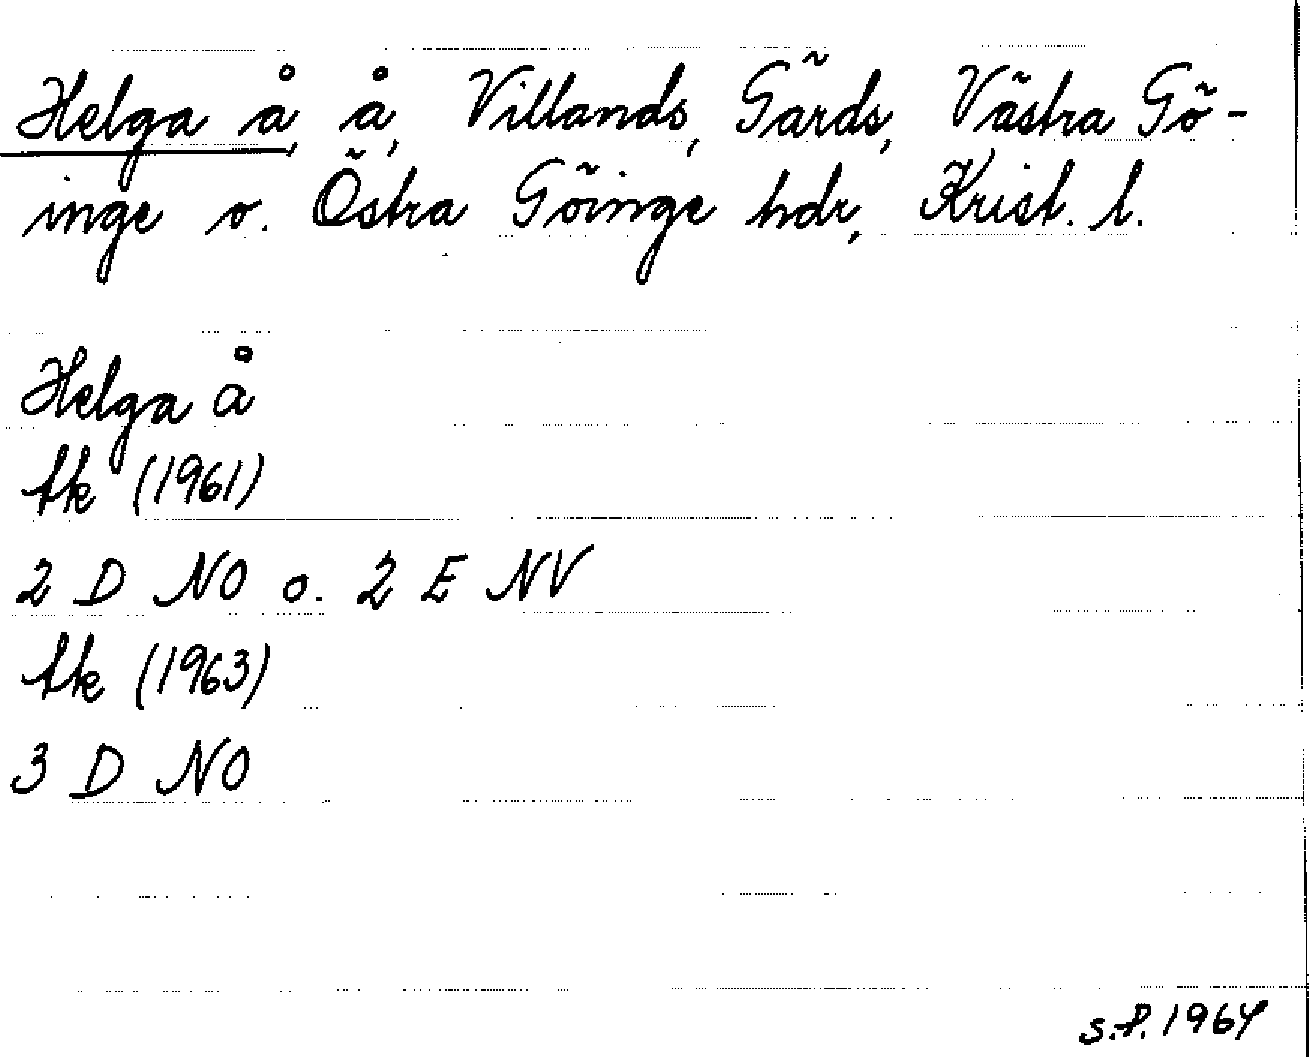 Helga å, å, Villands, Gärds, Västra Gö-
inge o. Östra Göinge hdr, Krist. l.
Helga å
tk (1961)
2 D NO o. 2 E NV
tk (1963)
3 D NO
s.f. 1964